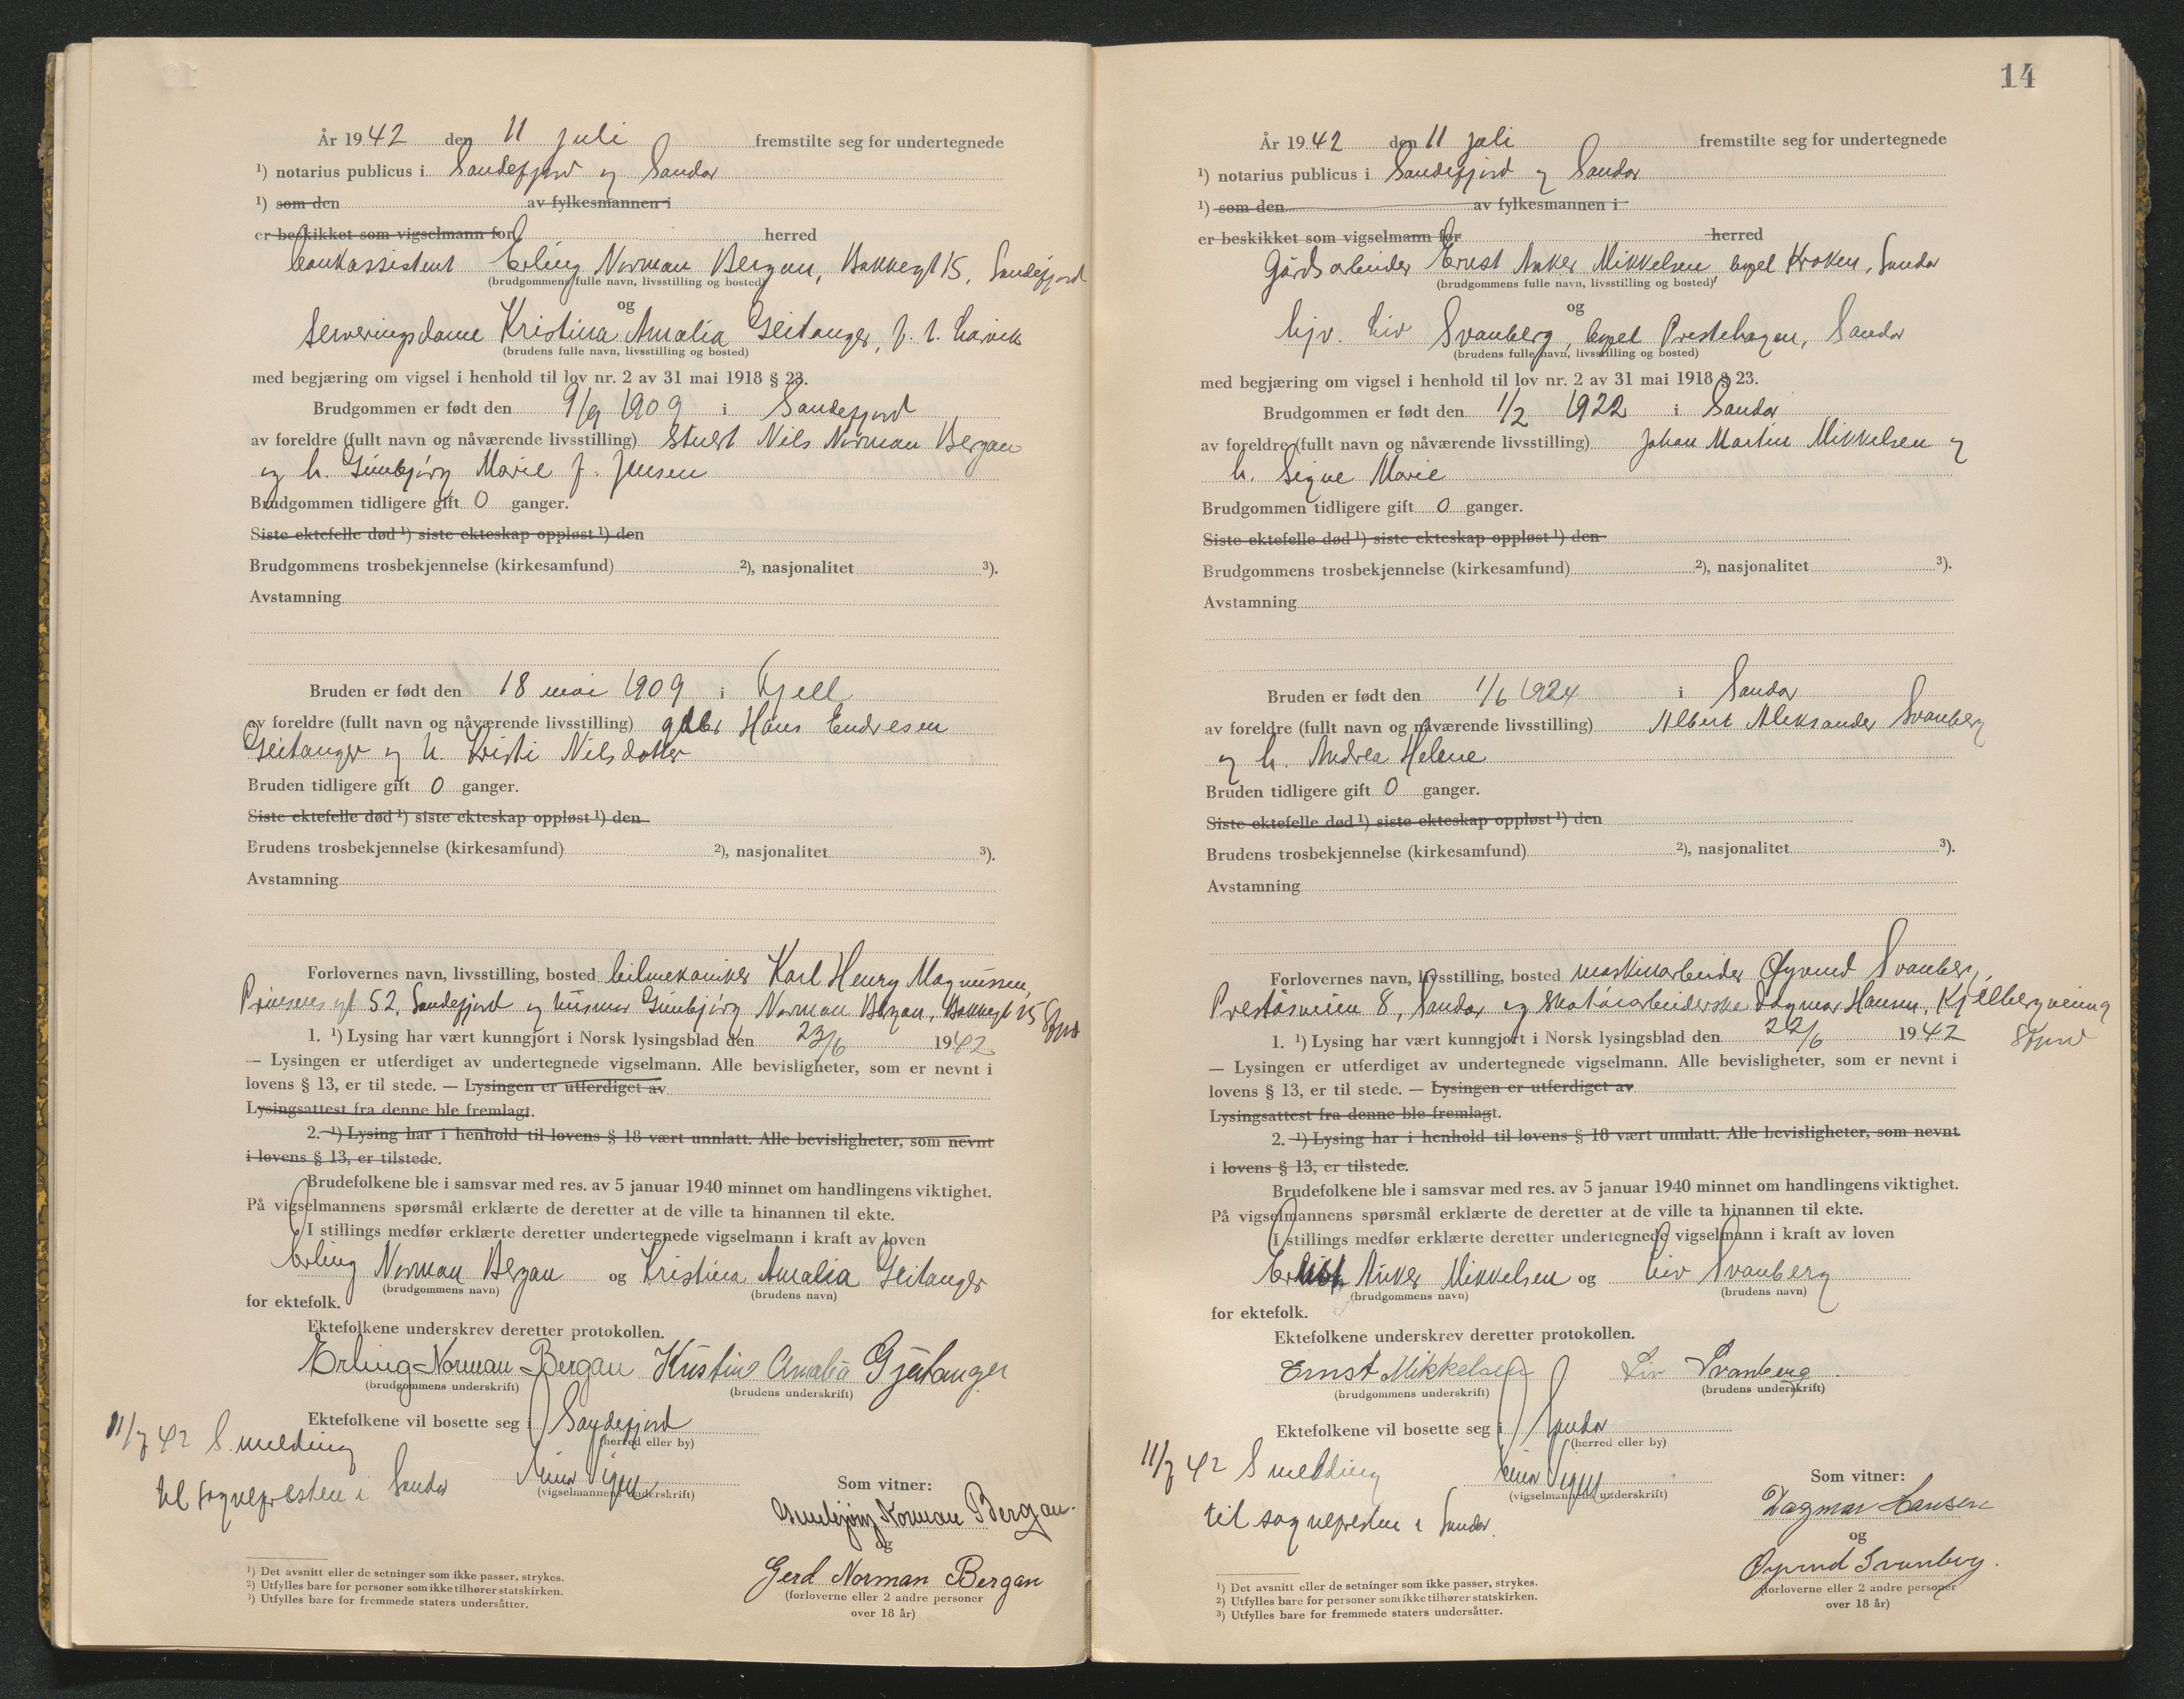 År 1942 den 11 juli fremstilte seg for undertegnede
¹) notarius publicus i Sandefjord og Sandar
¹) som den av fylkesmannen i
er beskikket som vigselmann for herred
bankassistent Erling Norman Bergan, Bakkegt 15, Sandefjord
(brudgommens fulle navn, livsstilling og bosted)
og
Serveringsdame Kristina Amalia Geitanger, f. t. Larvik
(brudens fulle navn, livsstilling og bosted)
med begjæring om vigsel i henhold til lov nr. 2 av 31 mai 1918 § 23.
Brudgommen er født den 9/9 1909 i Sandefjord
av foreldre (fullt navn og nåværende livsstilling) Stuert Nils Norman Bergan
og h. Gunbjørg Marie f. Jensen
Brudgommen tidligere gift 0 ganger.
Siste ektefelle død ¹) siste ekteskap oppløst ¹) den
Brudgommens trosbekjennelse (kirkesamfund) ²), nasjonalitet ³).
Avstamning
Bruden er født den 18 mai 1909 i Fjell
av foreldre (fullt navn og nåværende livsstilling) gdbr Hans Endresen
Geitanger og h. Kristi Nilsdotter
Bruden tidligere gift 0 ganger.
Siste ektefelle død ¹) siste ekteskap oppløst ¹) den
Brudens trosbekjennelse (kirkesamfund) ²), nasjonalitet ³).
Avstamning
Forlovernes navn, livsstilling, bosted bilmekaniker Karl Henry Magnussen,
Prinsens gt 52, Sandefjord og husmor Gunbjørg Norman Bergan, Bakkegt 15 Sfjord
1. ¹) Lysing har vært kunngjort i Norsk lysingsblad den 23/6 1942
— Lysingen er utferdiget av undertegnede vigselmann. Alle bevisligheter, som er nevnt i
lovens § 13, er til stede. — Lysingen er utferdiget av
Lysingsattest fra denne ble fremlagt.
2. ¹) Lysing har i henhold til lovens § 18 vært unnlatt. Alle bevisligheter, som nevnt
i lovens § 13, er tilstede.
Brudefolkene ble i samsvar med res. av 5 januar 1940 minnet om handlingens viktighet.
På vigselmannens spørsmål erklærte de deretter at de ville ta hinannen til ekte.
I stillings medfør erklærte deretter undertegnede vigselmann i kraft av loven
Erling Norman Bergan og Kristina Amalia Geitanger
(brudgommens navn) (brudens navn)
for ektefolk.
Ektefolkene underskrev deretter protokollen.
Erling Norman Bergan Kristine Amalia Gjeitanger
(brudgommens underskrift) (brudens underskrift)
Ektefolkene vil bosette seg i Sandefjord
(herred eller by)
11/7 42 S. melding
til sognepresten i Sandar
(vigselmannens underskrift)
Som vitner:
Gunbjørg Norman Bergan.
og
Gerd Norman Bergan
(forloverne eller 2 andre personer
over 18 år)
¹) Det avsnitt eller de setninger som ikke passer, strykes.
²) Utfylles bare for personer som ikke tilhører statskirken.
³) Utfylles bare for fremmede staters undersåtter.
14
År 1942 den 11 juli fremstilte seg for undertegnede
¹) notarius publicus i Sandefjord og Sandar
¹) som den av fylkesmannen i
er beskikket som vigselmann for herred
Gårdsarbeider Ernst Anker Mikkelsen, bopel Kroken, Sandar
(brudgommens fulle navn, livsstilling og bosted)
og
hjv. Liv Svanberg, bopel Prestehagen, Sandar
(brudens fulle navn, livsstilling og bosted)
med begjæring om vigsel i henhold til lov nr. 2 av 31 mai 1918 § 23.
Brudgommen er født den 1/2 1922 i Sandar
av foreldre (fullt navn og nåværende livsstilling) Johan Martin Mikkelsen og
h. Signe Marie
Brudgommen tidligere gift 0 ganger.
Siste ektefelle død ¹) siste ekteskap oppløst ¹) den
Brudgommens trosbekjennelse (kirkesamfund) ²), nasjonalitet ³).
Avstamning
Bruden er født den 1/6 1924 i Sandar
av foreldre (fullt navn og nåværende livsstilling) Albert Aleksander Svanberg
og h. Andrea Helene
Bruden tidligere gift 0 ganger.
Siste ektefelle død ¹) siste ekteskap oppløst ¹) den
Brudens trosbekjennelse (kirkesamfund) ²), nasjonalitet ³).
Avstamning
Forlovernes navn, livsstilling, bosted maskinarbeider Øyvind Svanberg,
Preståsveien 8, Sandar og skotøiarbeiderske Dagmar Hansen, Kjelbergveien 9
Sfjord
1. ¹) Lysing har vært kunngjort i Norsk lysingsblad den 22/6 1942
— Lysingen er utferdiget av undertegnede vigselmann. Alle bevisligheter, som er nevnt i
lovens § 13, er til stede. — Lysingen er utferdiget av
Lysingsattest fra denne ble fremlagt.
2. ¹) Lysing har i henhold til lovens § 18 vært unnlatt. Alle bevisligheter, som nevnt
i lovens § 13, er tilstede.
Brudefolkene ble i samsvar med res. av 5 januar 1940 minnet om handlingens viktighet.
På vigselmannens spørsmål erklærte de deretter at de ville ta hinannen til ekte.
I stillings medfør erklærte deretter undertegnede vigselmann i kraft av loven
Ernst Anker Mikkelsen og Liv Svanberg
(brudgommens navn) (brudens navn)
for ektefolk.
Ektefolkene underskrev deretter protokollen.
Ernst Mikkelsen Liv Svanberg
(brudgommens underskrift) (brudens underskrift)
Ektefolkene vil bosette seg i Sandar
(herred eller by)
11/7 42 S melding
til sognepresten i Sandar.
(vigselmannens underskrift)
Som vitner:
Dagmar Hansen
og
Øyvind Svanberg.
(forloverne eller 2 andre personer
over 18 år)
¹) Det avsnitt eller de setninger som ikke passer, strykes.
²) Utfylles bare for personer som ikke tilhører statskirken.
³) Utfylles bare for fremmede staters undersåtter.